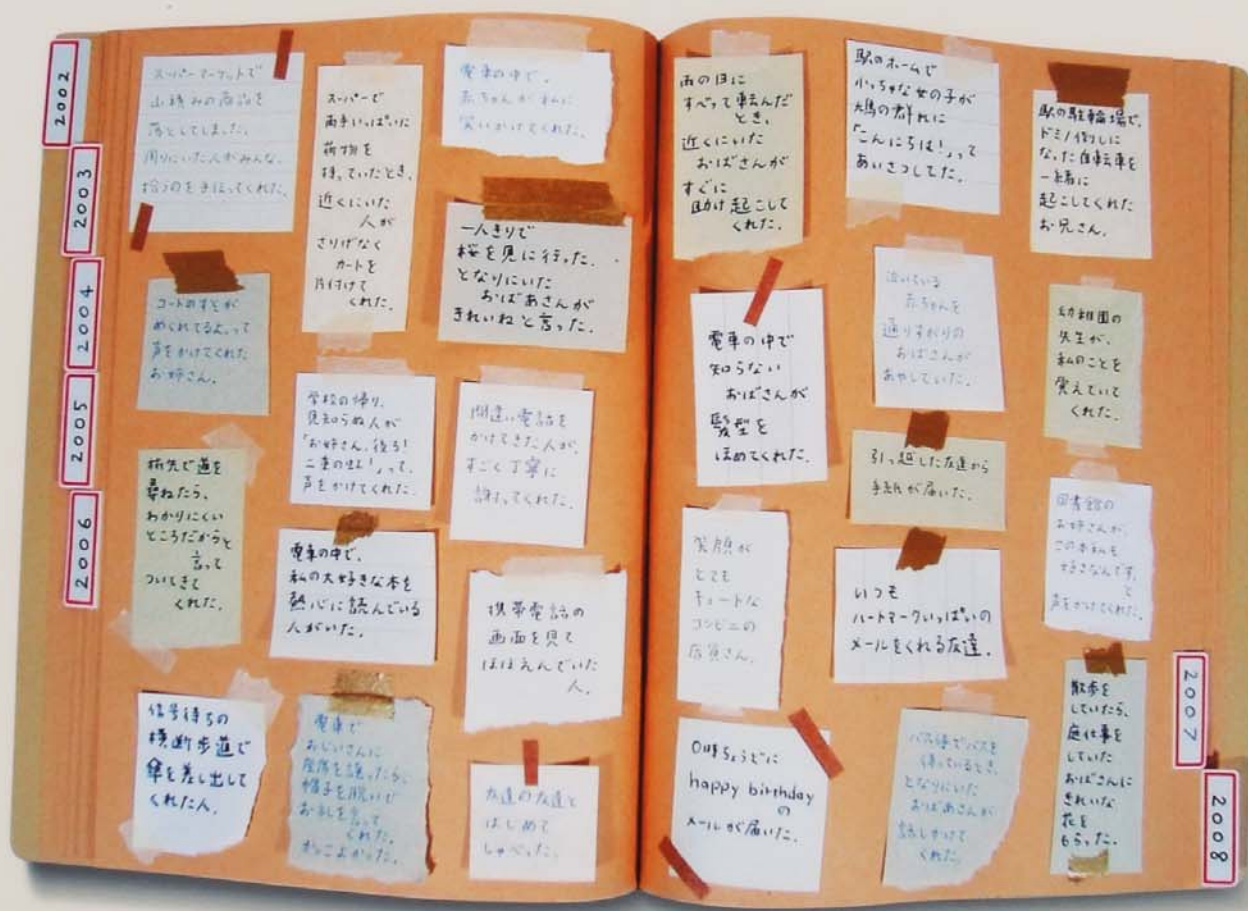 2002
2003
2004
2005
2006
スーパーマーケットで
山積みの商品を
落としてしまった。
周りにいた人がみんな、
拾うのを手伝ってくれた。
コートのすそが
めくれてるよ、って
声をかけてくれた
お姉さん。
旅先で道を
尋ねたら、
わかりにくい
ところだからと
言って
ついてきて
くれた。
信号待ちの
横断歩道で
傘を差し出して
くれた人。
スーパーで
両手いっぱいに
荷物を
持っていたとき、
近くにいた
人が
さりげなく
カートを
片付けて
くれた。
学校の帰り、
見知らぬ人が
「お姉さん、後ろ!
二重の虹!」って、
声をかけてくれた。
電車の中で、
私の大好きな本を
熱心に読んでいる
人がいた。
電車で
おじいさんに
座席を譲ったら、
帽子を脱いで
お礼を言って
くれた。
かっこよかった。
電車の中で、
赤ちゃんが私に
笑いかけてくれた。
一人きりで
桜を見に行った。
となりにいた
おばあさんが
きれいねと言った。
間違い電話を
かけてきた人が、
すごく丁寧に
謝ってくれた。
携帯電話の
画面を見て
ほほえんでいた
人。
友達の友達と
はじめて
しゃべった。
雨の日に
すべって転んだ
とき、
近くにいた
おばさんが
すぐに
助け起こして
くれた。
電車の中で
知らない
おばさんが
髪型を
ほめてくれた。
笑顔が
とても
キュートな
コンビニの
店員さん。
0時ちょうどに
happy birthday
の
メールが届いた。
駅のホームで
小っちゃな女の子が
鳩の群れに
「こんにちは!」って
あいさつしてた。
泣いている
赤ちゃんを
通りすがりの
おばさんが
あやしていた。
引っ越した友達から
手紙が届いた。
いつも
ハートマークいっぱいの
メールをくれる友達。
バス停でバスを
待っているとき、
となりにいた
おばあさんが
話しかけて
くれた。
駅の駐輪場で、
ドミノ倒しに
なった自転車を
一緒に
起こしてくれた
お兄さん。
幼稚園の
先生が、
私のことを
覚えていて
くれた。
図書館の
お姉さんが、
この本私も
好きなんです、
と
声をかけてくれた。
散歩を
していたら、
庭仕事を
していた
おばさんに
きれいな
花を
もらった。
2007
2008